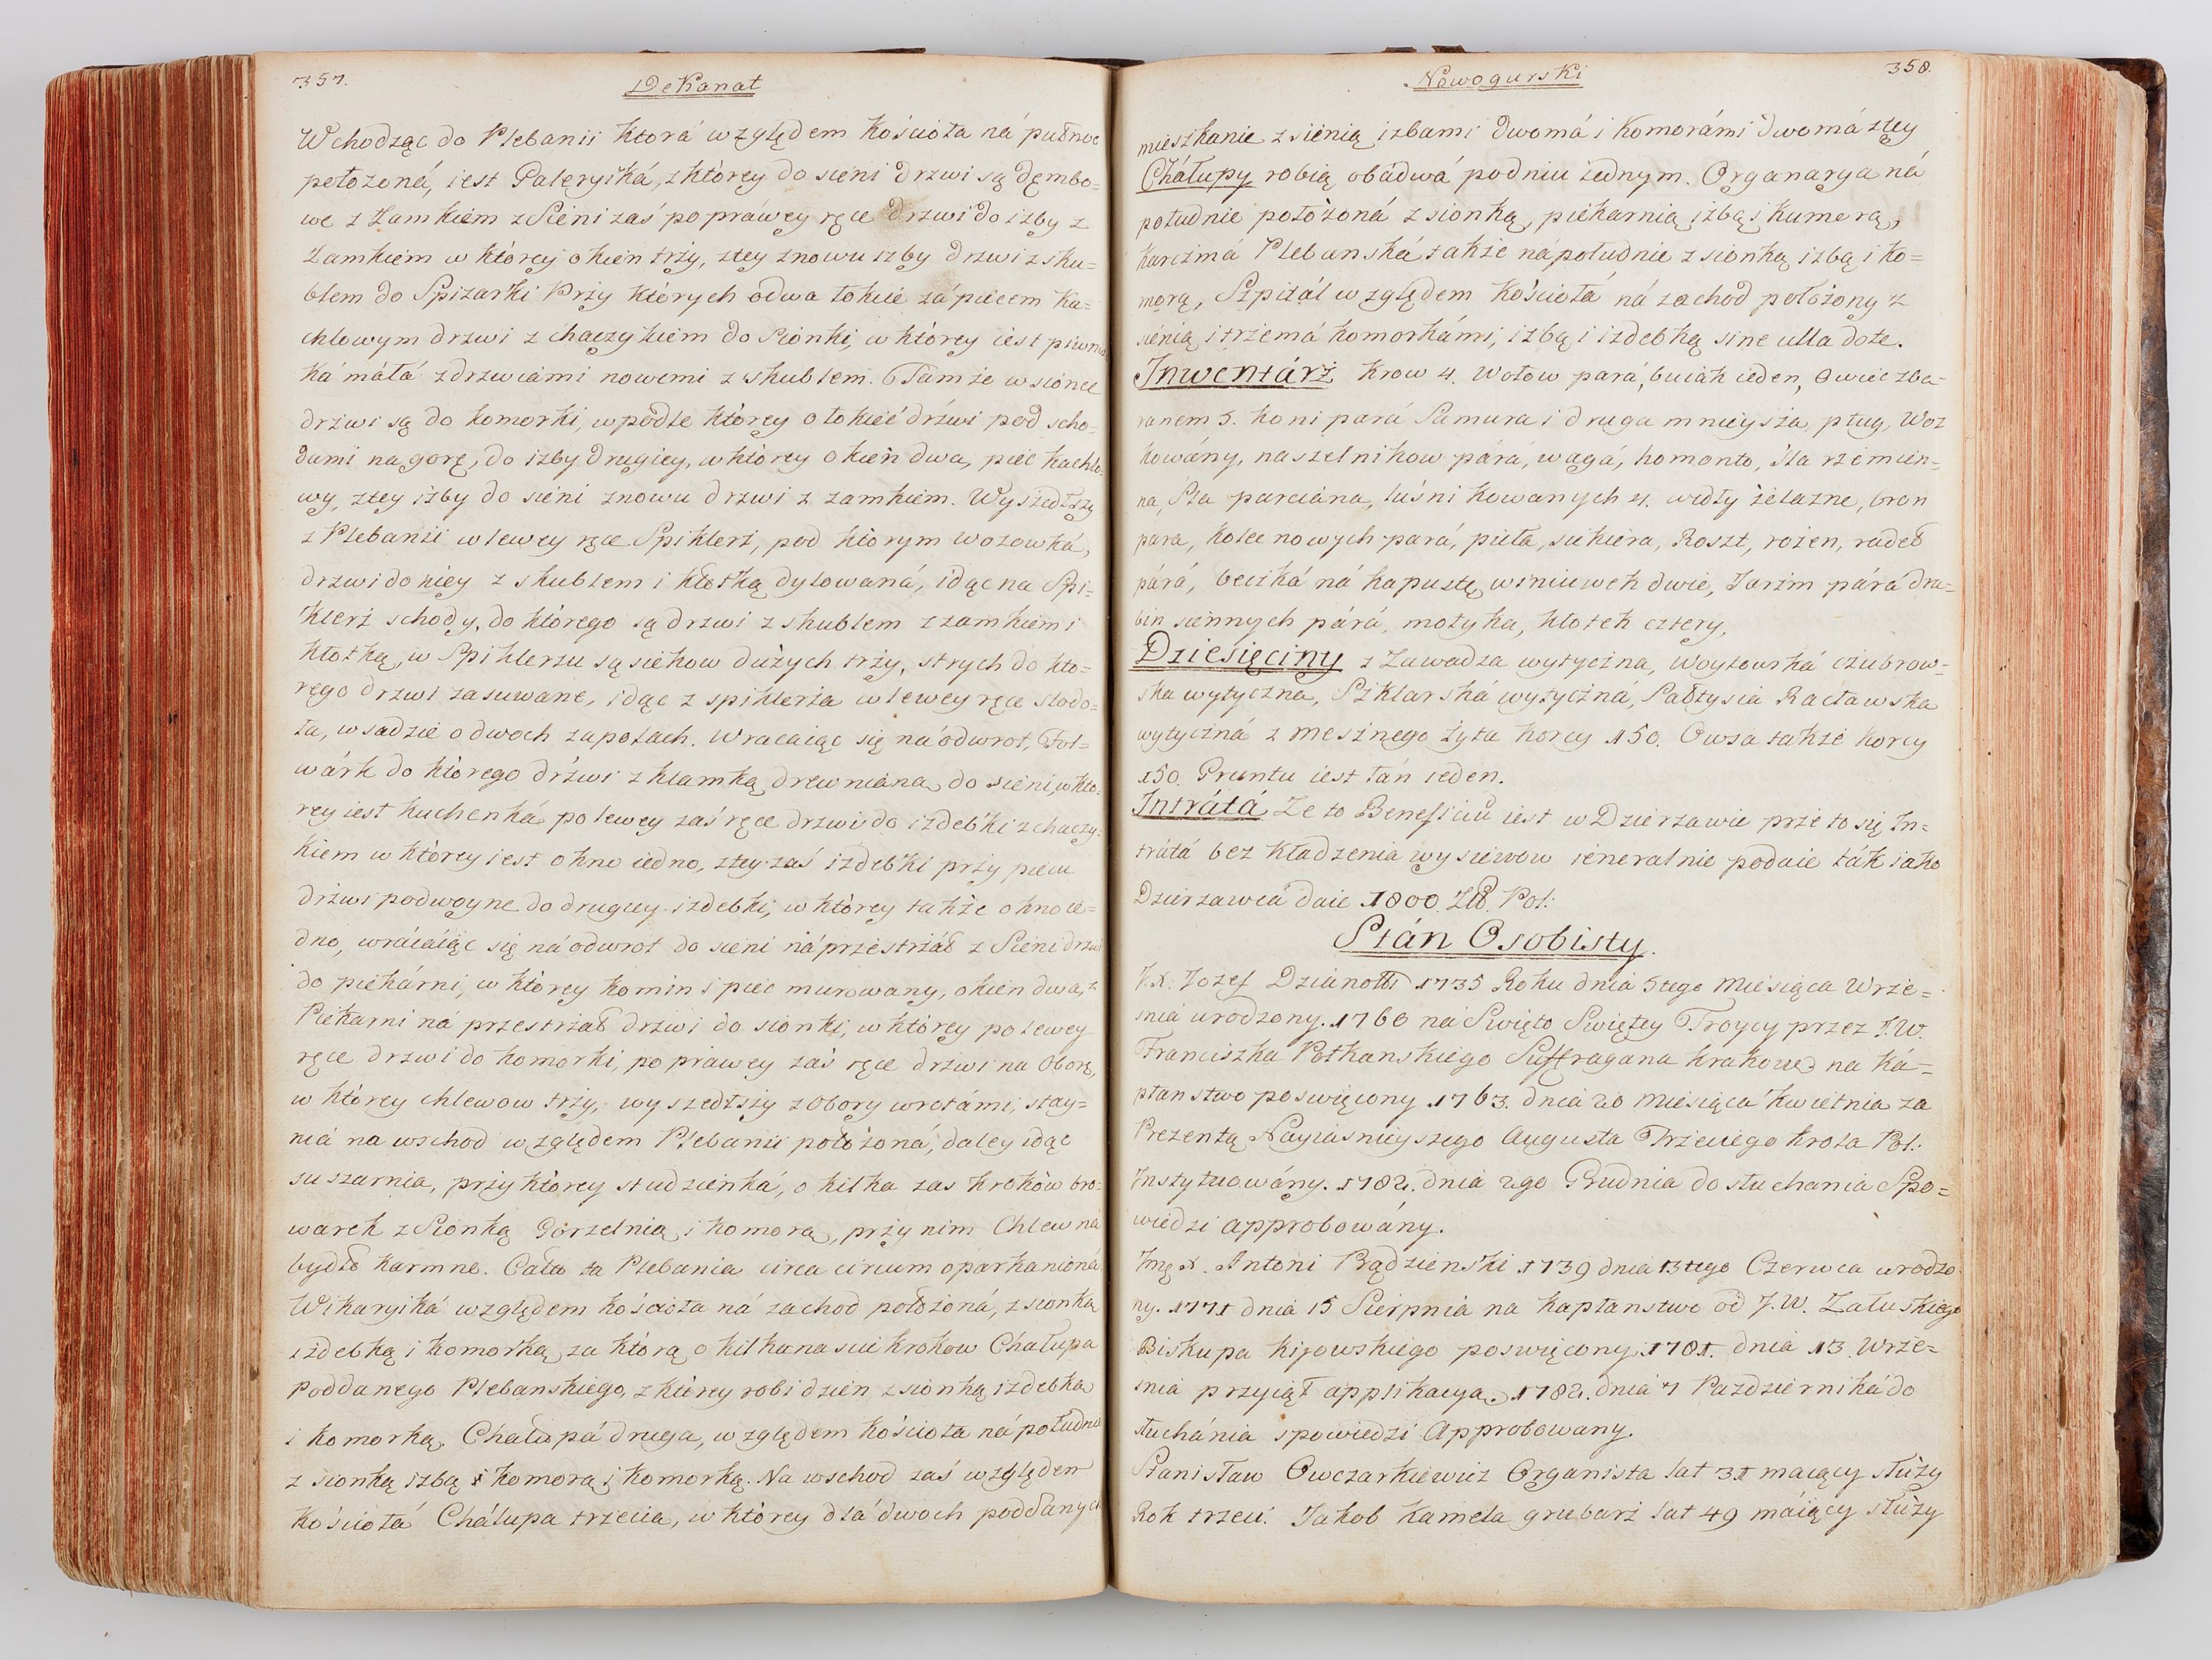 357.
Dekanat
Wchodząc do Plebanii ktorá względem kościoła ná pułnoc
położoná, iest Galęryiká, z ktòrey do sieni drzwi są dębo=
we z Zamkiem z Sieni zaś po práwey ręce drzwi do izby z
Zamkiem w ktòrey okien trży, ztey znowu izby drzwi z sku=
blem do Spizarki Prży ktòrych o dwa łokcie zá piecem Ka=
chlowym drzwi z chaczykiem do Sionki, w ktòrey iest piwni
ká máłá z drzwiami nowemi z skublem. Tamże w sionce
drżwi są do komorki, wpodle ktòrey o łokieć drżwi pod scho=
dami na gorę, do izby drugiey, w ktòrey okien dwa, piec kachlo
wy, ztey izby do sieni znowu drzwi z zamkiem. Wyszedłszy
z Plebanii w lewey ręce Spiklerż, pod ktòrym wozowká,
drzwi do niey z skublem i kłotką dylowaná, idąc na Spi=
klerż schody, do ktòrego są drzwi z skublem z zamkiem i
kłotką, w Spiklerzu są siekow dużych trży, strych do kto=
rego drzwi zasuwane, idąc z spiklerża w lewey ręce stodo=
ła, w sadzie o dwoch zapołach. Wracaiąc się ná odwrot, Fol=
wárk do ktòrego drżwi z klamką drewniana, do sieni, w kto=
rey iest kuchenká po lewey zaś ręce drzwi do izdebki z chaczy=
kiem w ktòrey iest okno iedno, ztey zaś izdebki prży piecu
drżwi podwoyne do drugiey izdebki, w ktòrey także okno ie=
dno, wrácáiąc się ná odwrot do sieni ná przestrżáł z Sieni drzwi
do piekárni, w ktòrey komin i piec murowany, okien dwa, z
Piekarni ná przestrżał drzwi do sionki, w ktòrey po lewey
ręce drzwi do komorki, po prawey zaś ręce drżwi na Oborę,
w ktòrey chlewow trży, wyszedłszy z Obory wrotámi, stay=
niá na wschod względem Plebanii położoná, daley idąc
suszarnia, prży ktòrey studzienká, o kilka zas krokòw bro=
warek z Sionką Gorzelnią i komorą, prży nim Chlew ná
bydło karmne. Cała ta Plebania circa circum oparkanioná
Wikaryiká względem kościoła ná zachod położoná, z sionką
izdebką i komorką, za ktòrą o kilkanascie krokow Chałupa
Poddanego Plebanskiego, z ktòrey robi dzien z sionką izdebką
i komorką. Chałupá druga, względem kościoła ná południe
z sionką izbą i komorą i komorką. Na wschod zaś względem
Kościołá Cháłupa trzecia, w ktòrey dlá dwoch poddanych
Nowogurski
358.
mieszkanie z sienią izbami dwomá i komorámi dwomá ztey
Cháłupy robią obádwá po dniu iednym. Organarya ná
południe położoná z sionką, piekarnią izbą i kumerą,
karczmá Plebanská także ná południe z sionką izbą i ko=
morą, Szpitál względem kościołá ná zachod położony z
sienią i trzemá komorkámi, izbą i izdebką sine ulla dote.
Inwentárż Krow 4. Wołow pará, buiák ieden, Owiec z ba=
ranem 5. koni pará Samura i druga mnieysza, pług, Woz
kowány, naszelnikow párá, wagá, homonto, sla rzemien=
na, Sla parciána, luśni kowanych 4. widły żelazne, bron
para, kolec nowych pará, piła, siekiera, Roszt, rożen, rádeł
párá, beczká ná kapustę, dwie, Jarżm párá dra=
bin siennych párá, motyka, kłotek cztery,
Dziesięciny z Zawadza wytyczna, Woytowská czubrow=
ska wytyczna, Szklarská wytyczná, Sałtysia Racławska
wytyczná z mesznego żyta korcy 150. Owsa także korcy
150. Gruntu iest łán ieden.
Intrátá Ze to Beneficiū iest w Dzierzawie prżeto się In=
tratá bez kładzenia wysiewow ieneralnie podaie ták iako
Dzierzawcá daie 1800. Zł. Pol:
Stán Osobisty.
J.X. Jozef Dzianotti 1735 Roku dnia 5tego Miesiąca Wrze=
śnia urodzony. 1760 ná Swięto Swiętey Troycy przez J.W.
Franciszka Potkanskiego Suffragana krakows na Ká=
płanstwo poswięcony 1763. dnia 20 Miesiąca Kwietnia za
Prezentą Nayiasnieyszego Augusta Trzeciego krola Pol:
Instytuowány. 1782. dnia 2go Grudnia do słuchania Spo=
wiedzi approbowány.
Jmę X. Antoni Bądzienski 1739 dnia 13tego Czerwca urodzo
ny. 1771 dnia 15 Sierpnia na kapłanstwo od J.W. Załuskiego
Biskupa kijowskiego poswięcony. 1781. dnia 13. Wrze=
śnia przyiął applikacyą. 1782. dnia 7 Pazdziernika do
słuchánia spowiedzi Approbowany.
Stanisław Owczarkiewicz Organista lat 31 maiący służy
Rok trzeci. Jakob Kamela grubarż lat 49 máiący służy